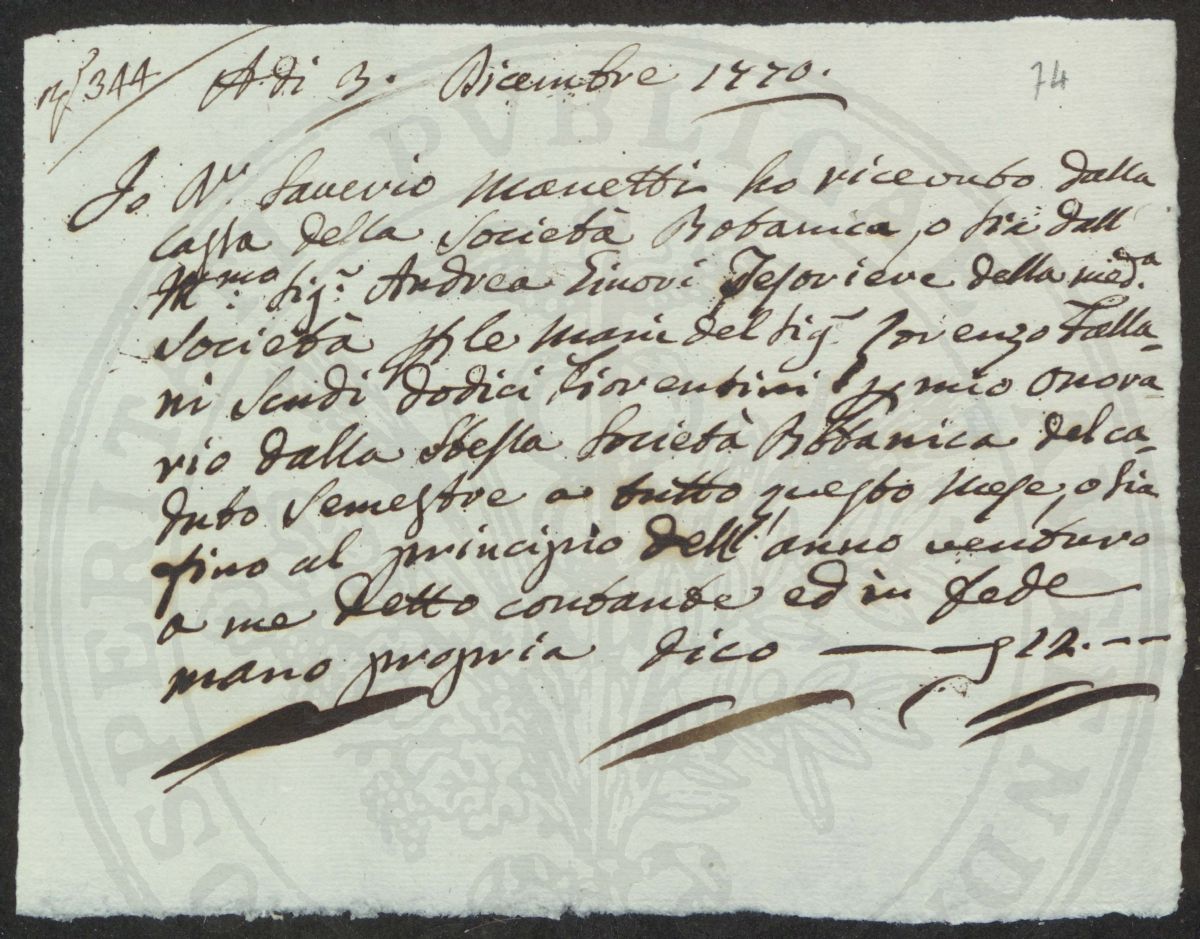 N° 344 A di 3. Dicembre 1770. 74
Io Dr. Saverio Manetti ho ricevuto dalla
cassa della Società Botanica, o sia dall
Ill.mo Sig.r Andrea Ginori Tesoriere della med.da
Società p le mani del Sig.r Lorenzo Falla=
ni Scudi dodici fiorentini p mio onora=
rio dalla Stessa Società Botanica del ca=
duto Semestre a tutto questo mese, o sia
fino al principio dell' anno venturo
a me detto contante ed in fede
mano propria dico — 12.--
PVBLICAE
PROSPERITATI